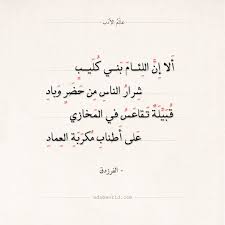 عالم الأدب
ألا إنّ اللئام بني كليب
شرار الناس من حضر وباد
قبيّلة تقاعس في المخازي
على أطناب مكربة العماد
- الفرزدق
adabworld.com